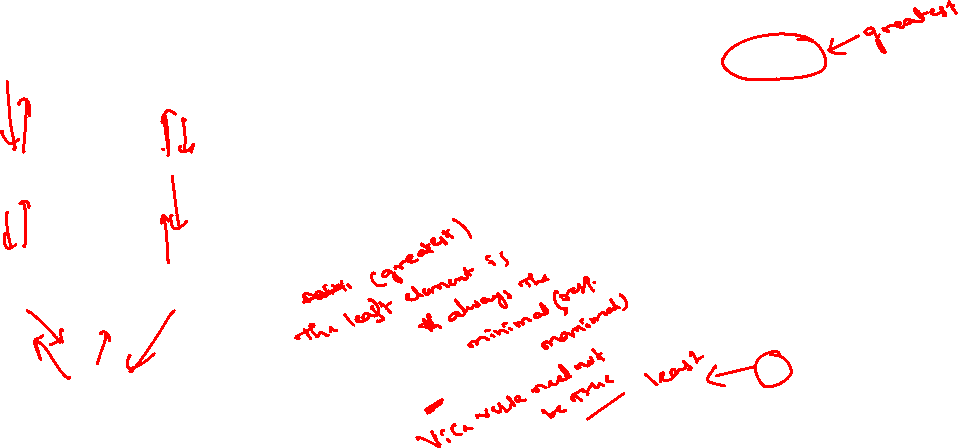 greatest
(greatest)
The least element is
always the
minimal (resp.
maximal)
Vice versa need not
be true
least